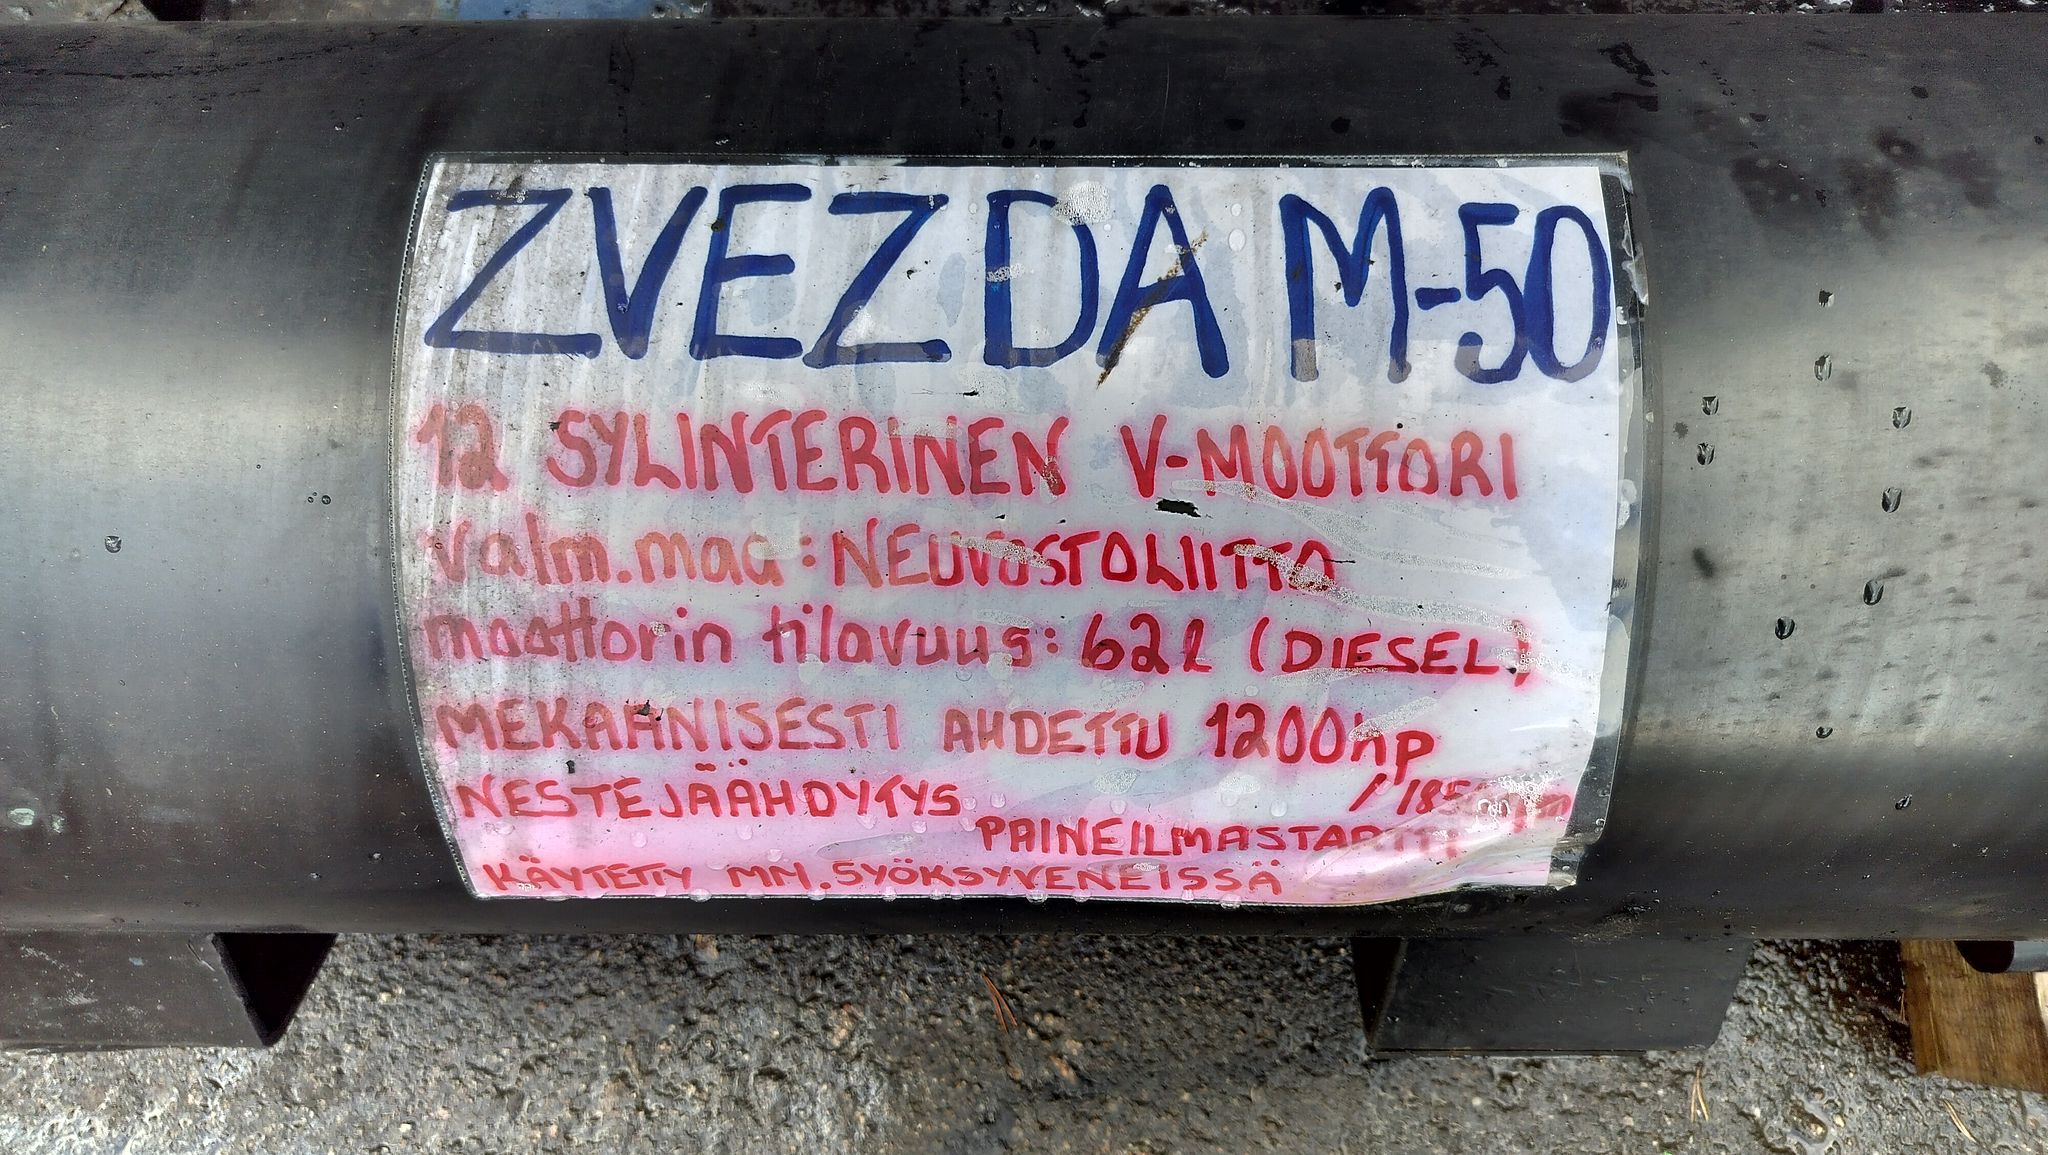 ZVEZDA M-50
12 SYLINTERINEN V-MOOTTORI
valm.maa: NEUVOSTOLIITTO
moottorin tilavuus: 62l (DIESEL)
MEKAANISESTI AHDETTU 1200hp
NESTEJÄÄHDYTYS
PAINEILMASTARTTI
KÄYTETTY MM. SYÖKSYVENEISSÄ